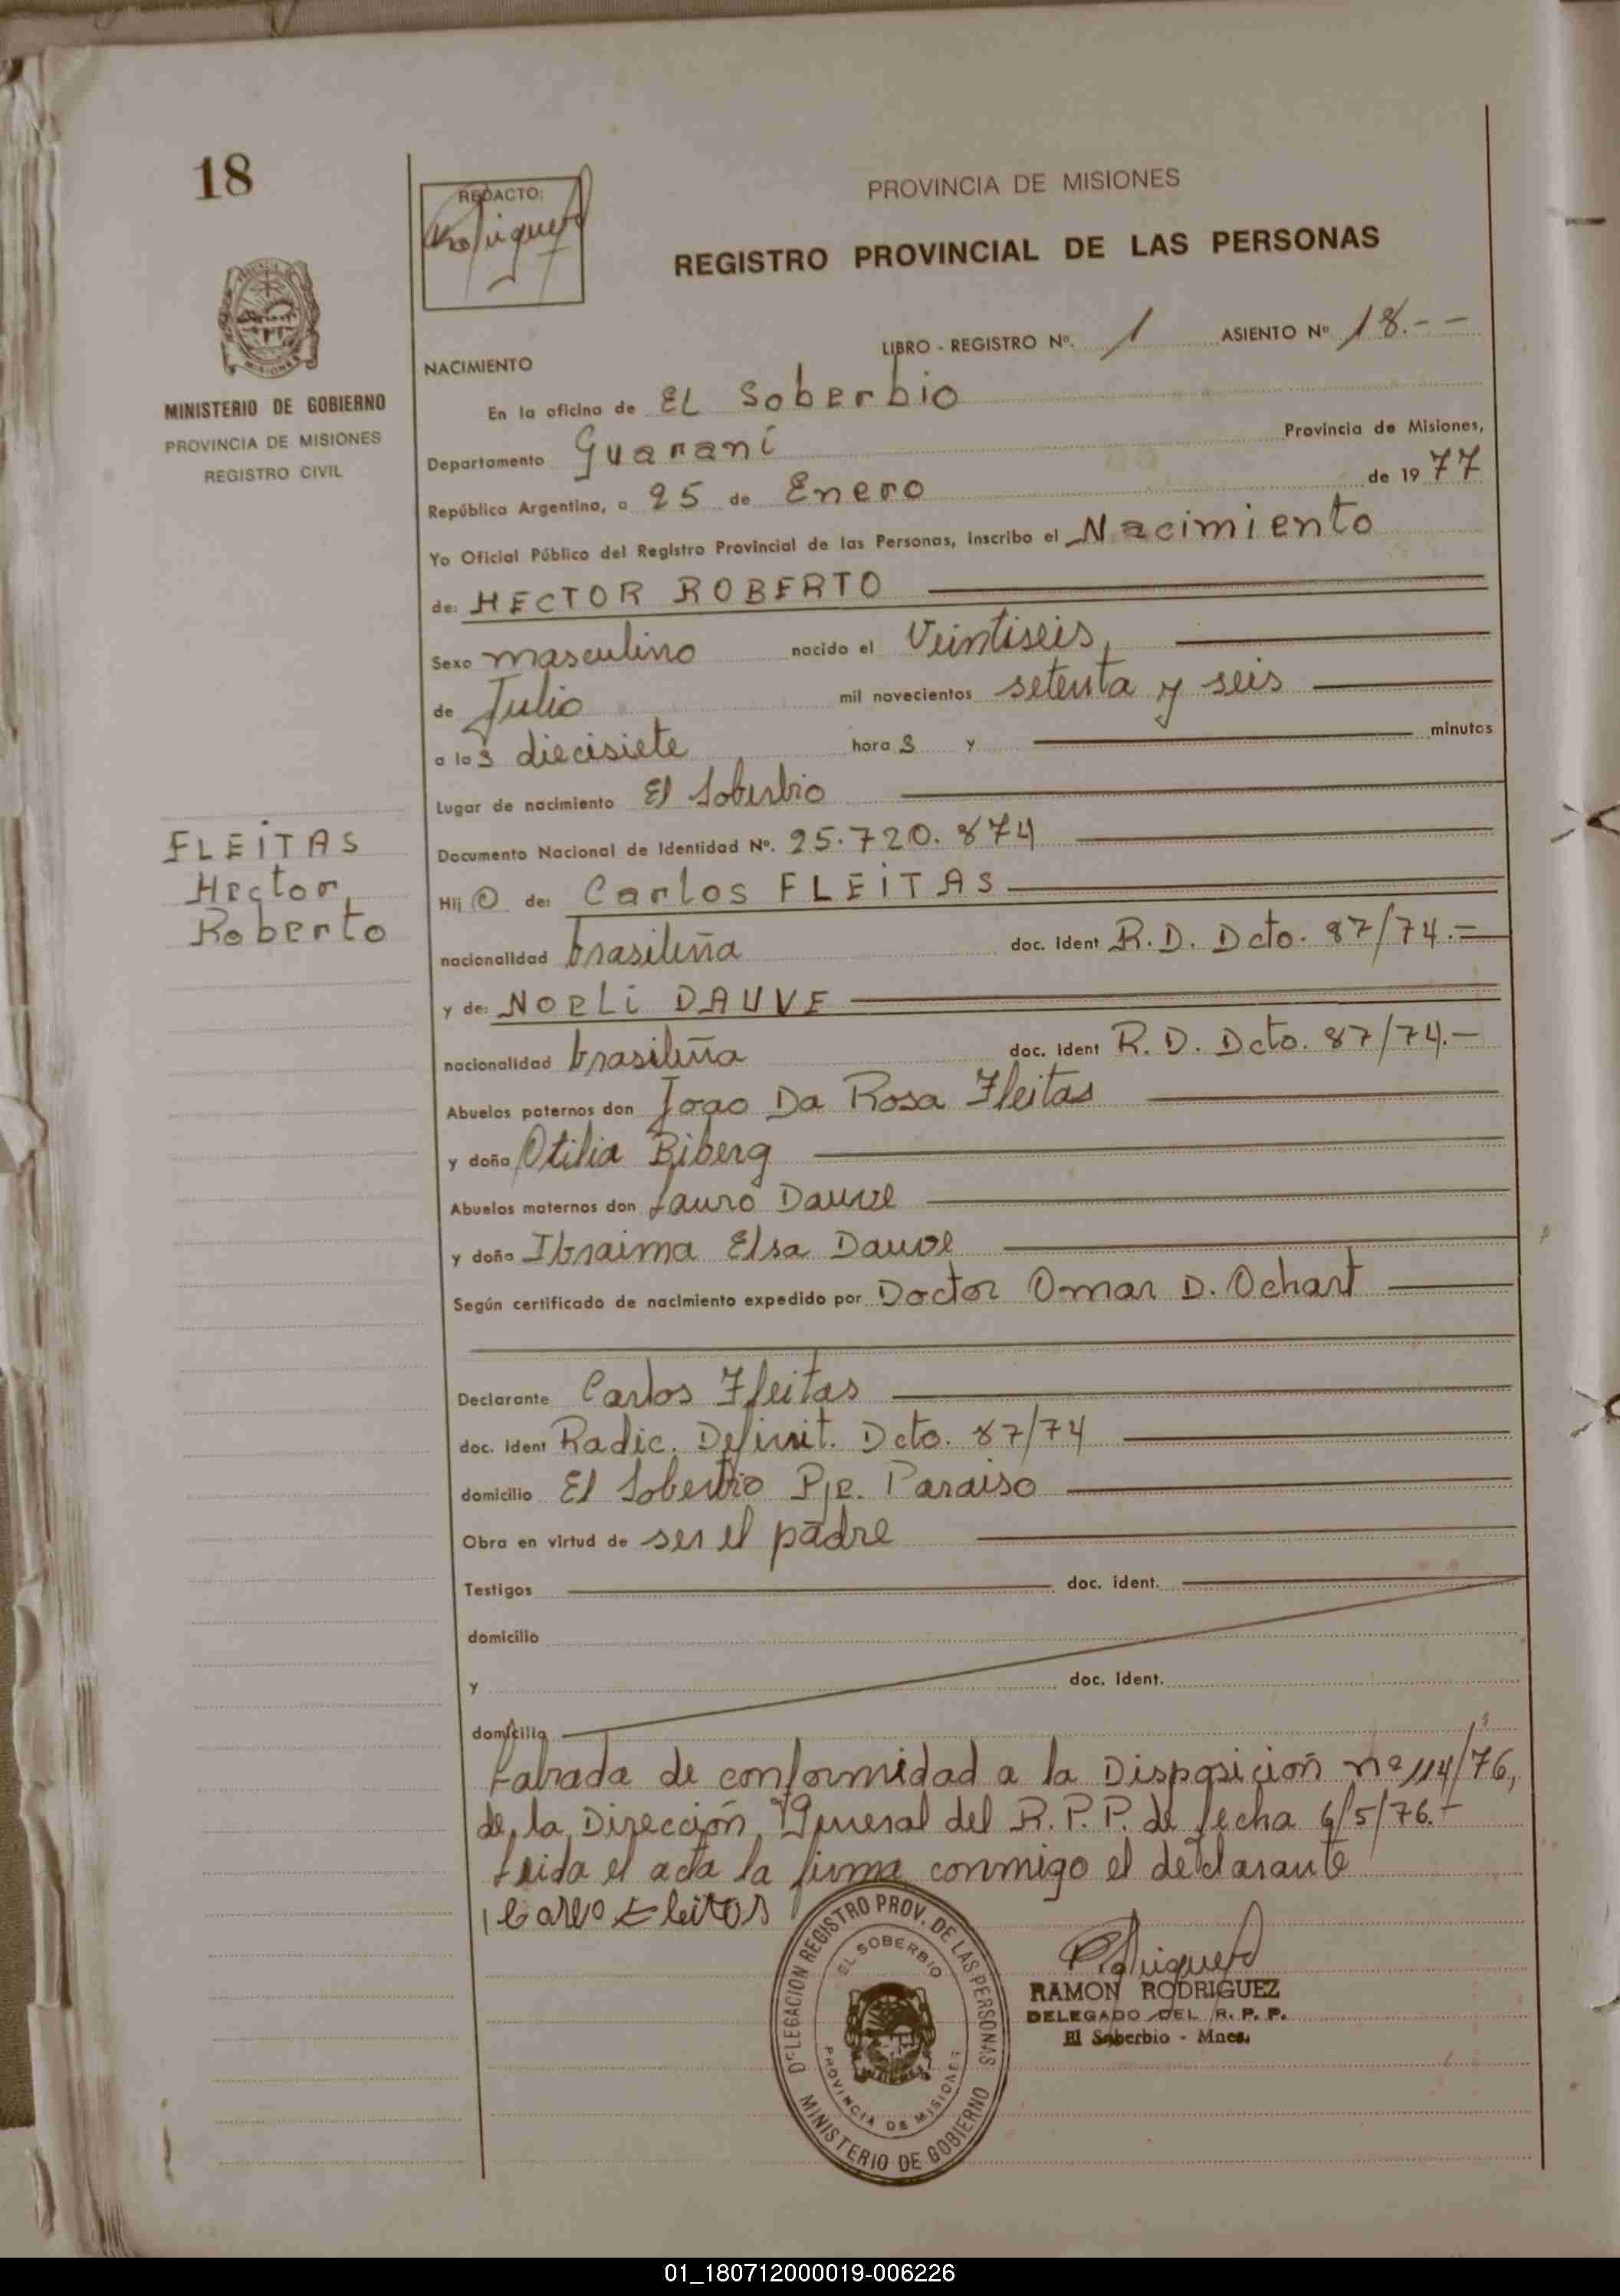 18
REDACTO:
Rodriguez
PROVINCIA DE MISIONES
REGISTRO PROVINCIAL DE LAS PERSONAS
LIBRO - REGISTRO Nº. 1 ASIENTO Nº 18.--
NACIMIENTO
MINISTERIO DE GOBIERNO
PROVINCIA DE MISIONES
REGISTRO CIVIL
En la oficina de EL Soberbio
Departamento Guaraní Provincia de Misiones,
República Argentina, a 25 de Enero de 1977
Yo Oficial Público del Registro Provincial de las Personas, inscribo el Nacimiento
de: HECTOR ROBERTO
Sexo masculino nacido el Veintiseis,
de Julio mil novecientos setenta y seis
a las diecisiete horas y minutos
Lugar de nacimiento El Soberbio
Documento Nacional de Identidad Nº. 25.720.874
FLEiTAS
Hector
Roberto
Hijo de: Carlos FLEiTAS
nacionalidad brasileña doc. ident R.D. Dcto. 87/74.-
y de: NOELi DAUVE
nacionalidad brasileña doc. ident R.D. Dcto. 87/74.-
Abuelos paternos don Joao Da Rosa Fleitas
y doña Otilia Biberg
Abuelos maternos don Lauro Dauve
y doña Ibraima Elsa Dauve
Según certificado de nacimiento expedido por Doctor Omar D. Ochart
Declarante Carlos Fleitas
doc. ident Radic. Definit. Dcto. 87/74
domicilio El Soberbio Pje. Paraiso
Obra en virtud de ser el padre
Testigos doc. ident.
domicilio
y doc. ident.
domicilio
Labrada de conformidad a la Disposición nº 114/76,
de la Dirección General del R.P.P. de fecha 6/5/76.-
Leida el acta la firma conmigo el declarante
DELEGACION REGISTRO PROV. DE LAS PERSONAS
EL SOBERBIO
PROVINCIA DE MISIONES
MINISTERIO DE GOBIERNO
Rodriguez
RAMON RODRIGUEZ
DELEGADO DEL R. P. P.
El Soberbio - Mnes.
01_180712000019-006226